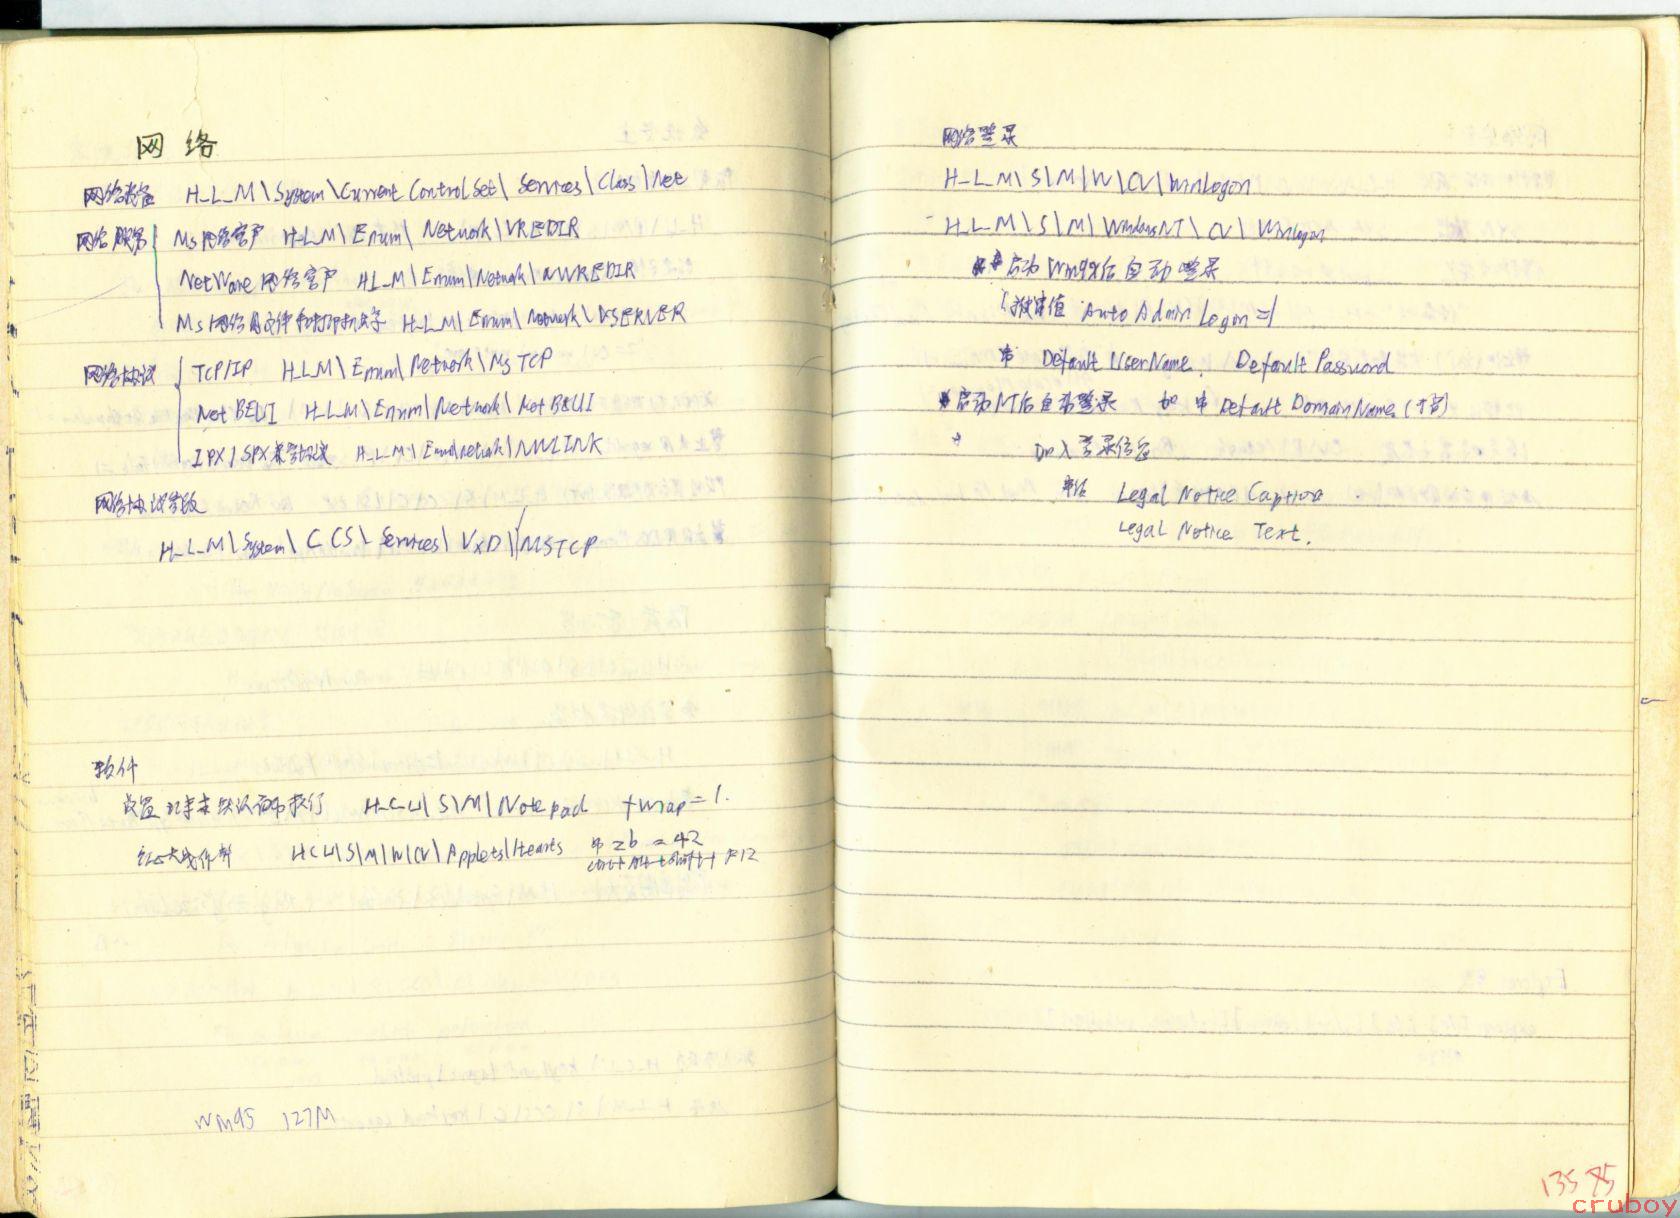 网络
网络设备 H_L_M\System\Current ControlSet\Services\Class\Net
网络服务 Ms网络客户 H_L_M\Enum\Network\VREDIR
NetWare网络客户 H_L_M\Enum\Network\NWREDIR
Ms网络的文件和打印机共享 H_L_M\Enum\Network\VSERVER
网络协议 TCP/IP H_L_M\Enum\Network\MsTCP
Net BEUI H_L_M\Enum\Network\NetBEUI
IPX/SPX兼容协议 H_L_M\Enum\Network\NWLINK
网络协议参数
H_L_M\System\CCS\Services\VxD\MSTCP
软件
设置记事本默认自动换行 H_C_U\S\M\Notepad fWrap=1.
红心大战作弊 HCU\S\M\W\CV\Applets\Hearts 串 zb = 42
ctrl+Alt+shift+F12
WM95 127M
网络登录
H_L_M\S\M\W\CV\WinLogon
H_L_M\S\M\WindowsNT\CV\Winlogon
启动Win9x后自动登录
键值 Auto Admin Logon=1
串 Default UserName, Default Password
启动NT后自动登录 加 串 Default DomainName
登录信息
串 Legal Notice Caption
Legal Notice Text.
135 75
cruboy